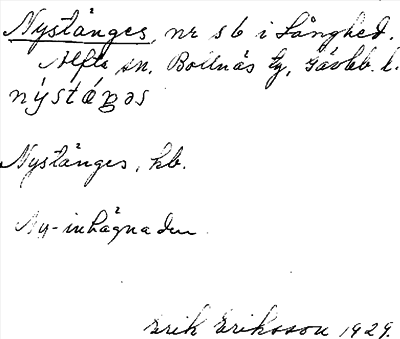 Nystånges, nr 56 i Långhed,
Alfta sn. Bollnäs tg, Gävleb. l.
nýstáŋəs
Nystånges, kb.
Ny-inhägnaden
Erik Eriksson 1929.